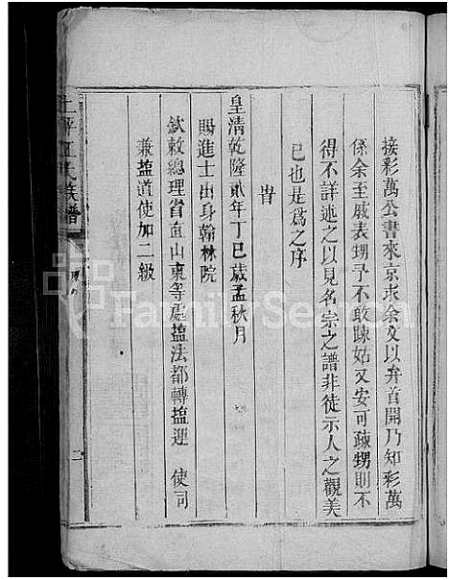 接彩萬公書來京求余文以弁首開乃知彩萬
係余至戚表甥予不敢踈姑又安可踈甥則不
得不詳述之以見名宗之譜非徒示人之觀美
已也是為之序
旹
皇清乾隆貳年丁巳歲孟秋月
賜進士出身翰林院
欽敕總理省直山東等處塩法都轉塩運　使司
兼塩道使加二級
氏族譜
二
FamilySearch